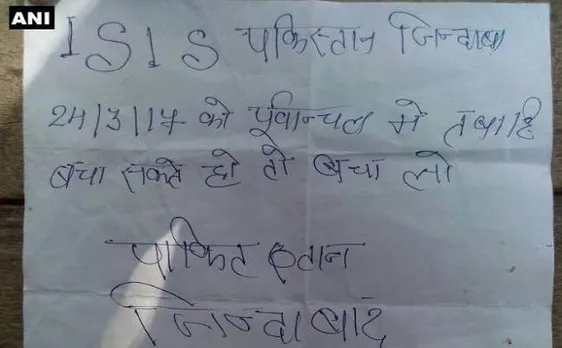 ANI
ISIS पकिस्तान जिन्दाबा
24/3/17 को पूर्वान्चल मे तबाहि
बचा सकते हो तो बचा लो
पाकिटस्तान
जिन्दाबाद